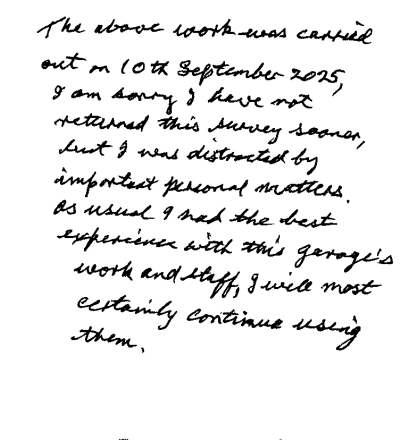 The above work was carried
out on 10th September 2025,
I am sorry I have not
returned this survey sooner,
but I was distracted by
important personal matters.
As usual I had the best
experience with this garage's
work and staff, I will most
certainly continue using
them.